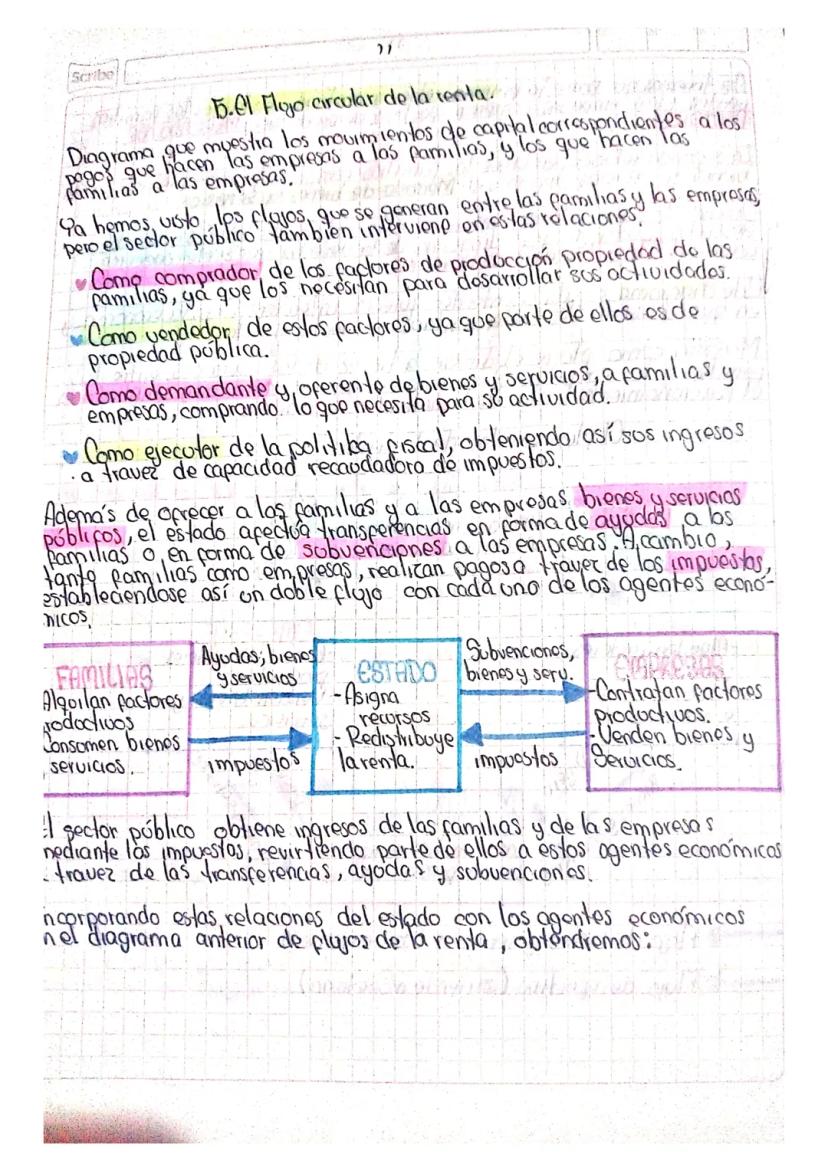 11
Scribe
5. El Flujo circular de la renta.
Diagrama que muestra los movimientos de capital correspondientes a los
pagos que hacen las empresas a las familias, y los que hacen las
familias a las empresas.
Ya hemos visto los flujos, que se generan entre las familias y las empresas,
pero el sector público tambien interviene en estas relaciones.
Como comprador de los factores de producción propiedad de las
familias, ya que los necesitan para desarrollar sus actividades.
Como vendedor de estos factores, ya que parte de ellos es de
propiedad pública.
Como demandante y oferente de bienes y servicios, a familias y
empresas, comprando lo que necesita para su actividad.
Como ejecutor de la politiba fiscal, obteniendo así sus ingresos
a travez de capacidad recaudadora de impuestos.
Además de ofrecer a las familias y a las empresas bienes y servicios
públicos, el estado afectúa transferencias en forma de ayudas a las
familias o en forma de subvenciones a las empresas. A cambio,
tanto familias como empresas, realizan pagos a travez de los impuestos,
estableciendose así un doble flujo con cada uno de los agentes econó-
micos.
FAMILIAS
Alquilan factores
roductivos
Consumen bienes
servicios.
Ayudas, bienes
y servicios
impuestos
ESTADO
-Asigna
recursos
-Redistribuye
la renta.
Subvenciones,
bienes y serv.
impuestos
EMPRESAS
-Contratan factores
productivos.
-Venden bienes y
Servicios.
El sector público obtiene ingresos de las familias y de las empresas
mediante los impuestos, revirtiendo parte de ellos a estos agentes económicos
travez de las transferencias, ayudas y subvenciones.
ncorporando estas relaciones del estado con los agentes económicos
n el diagrama anterior de flujos de la renta, obtendremos: